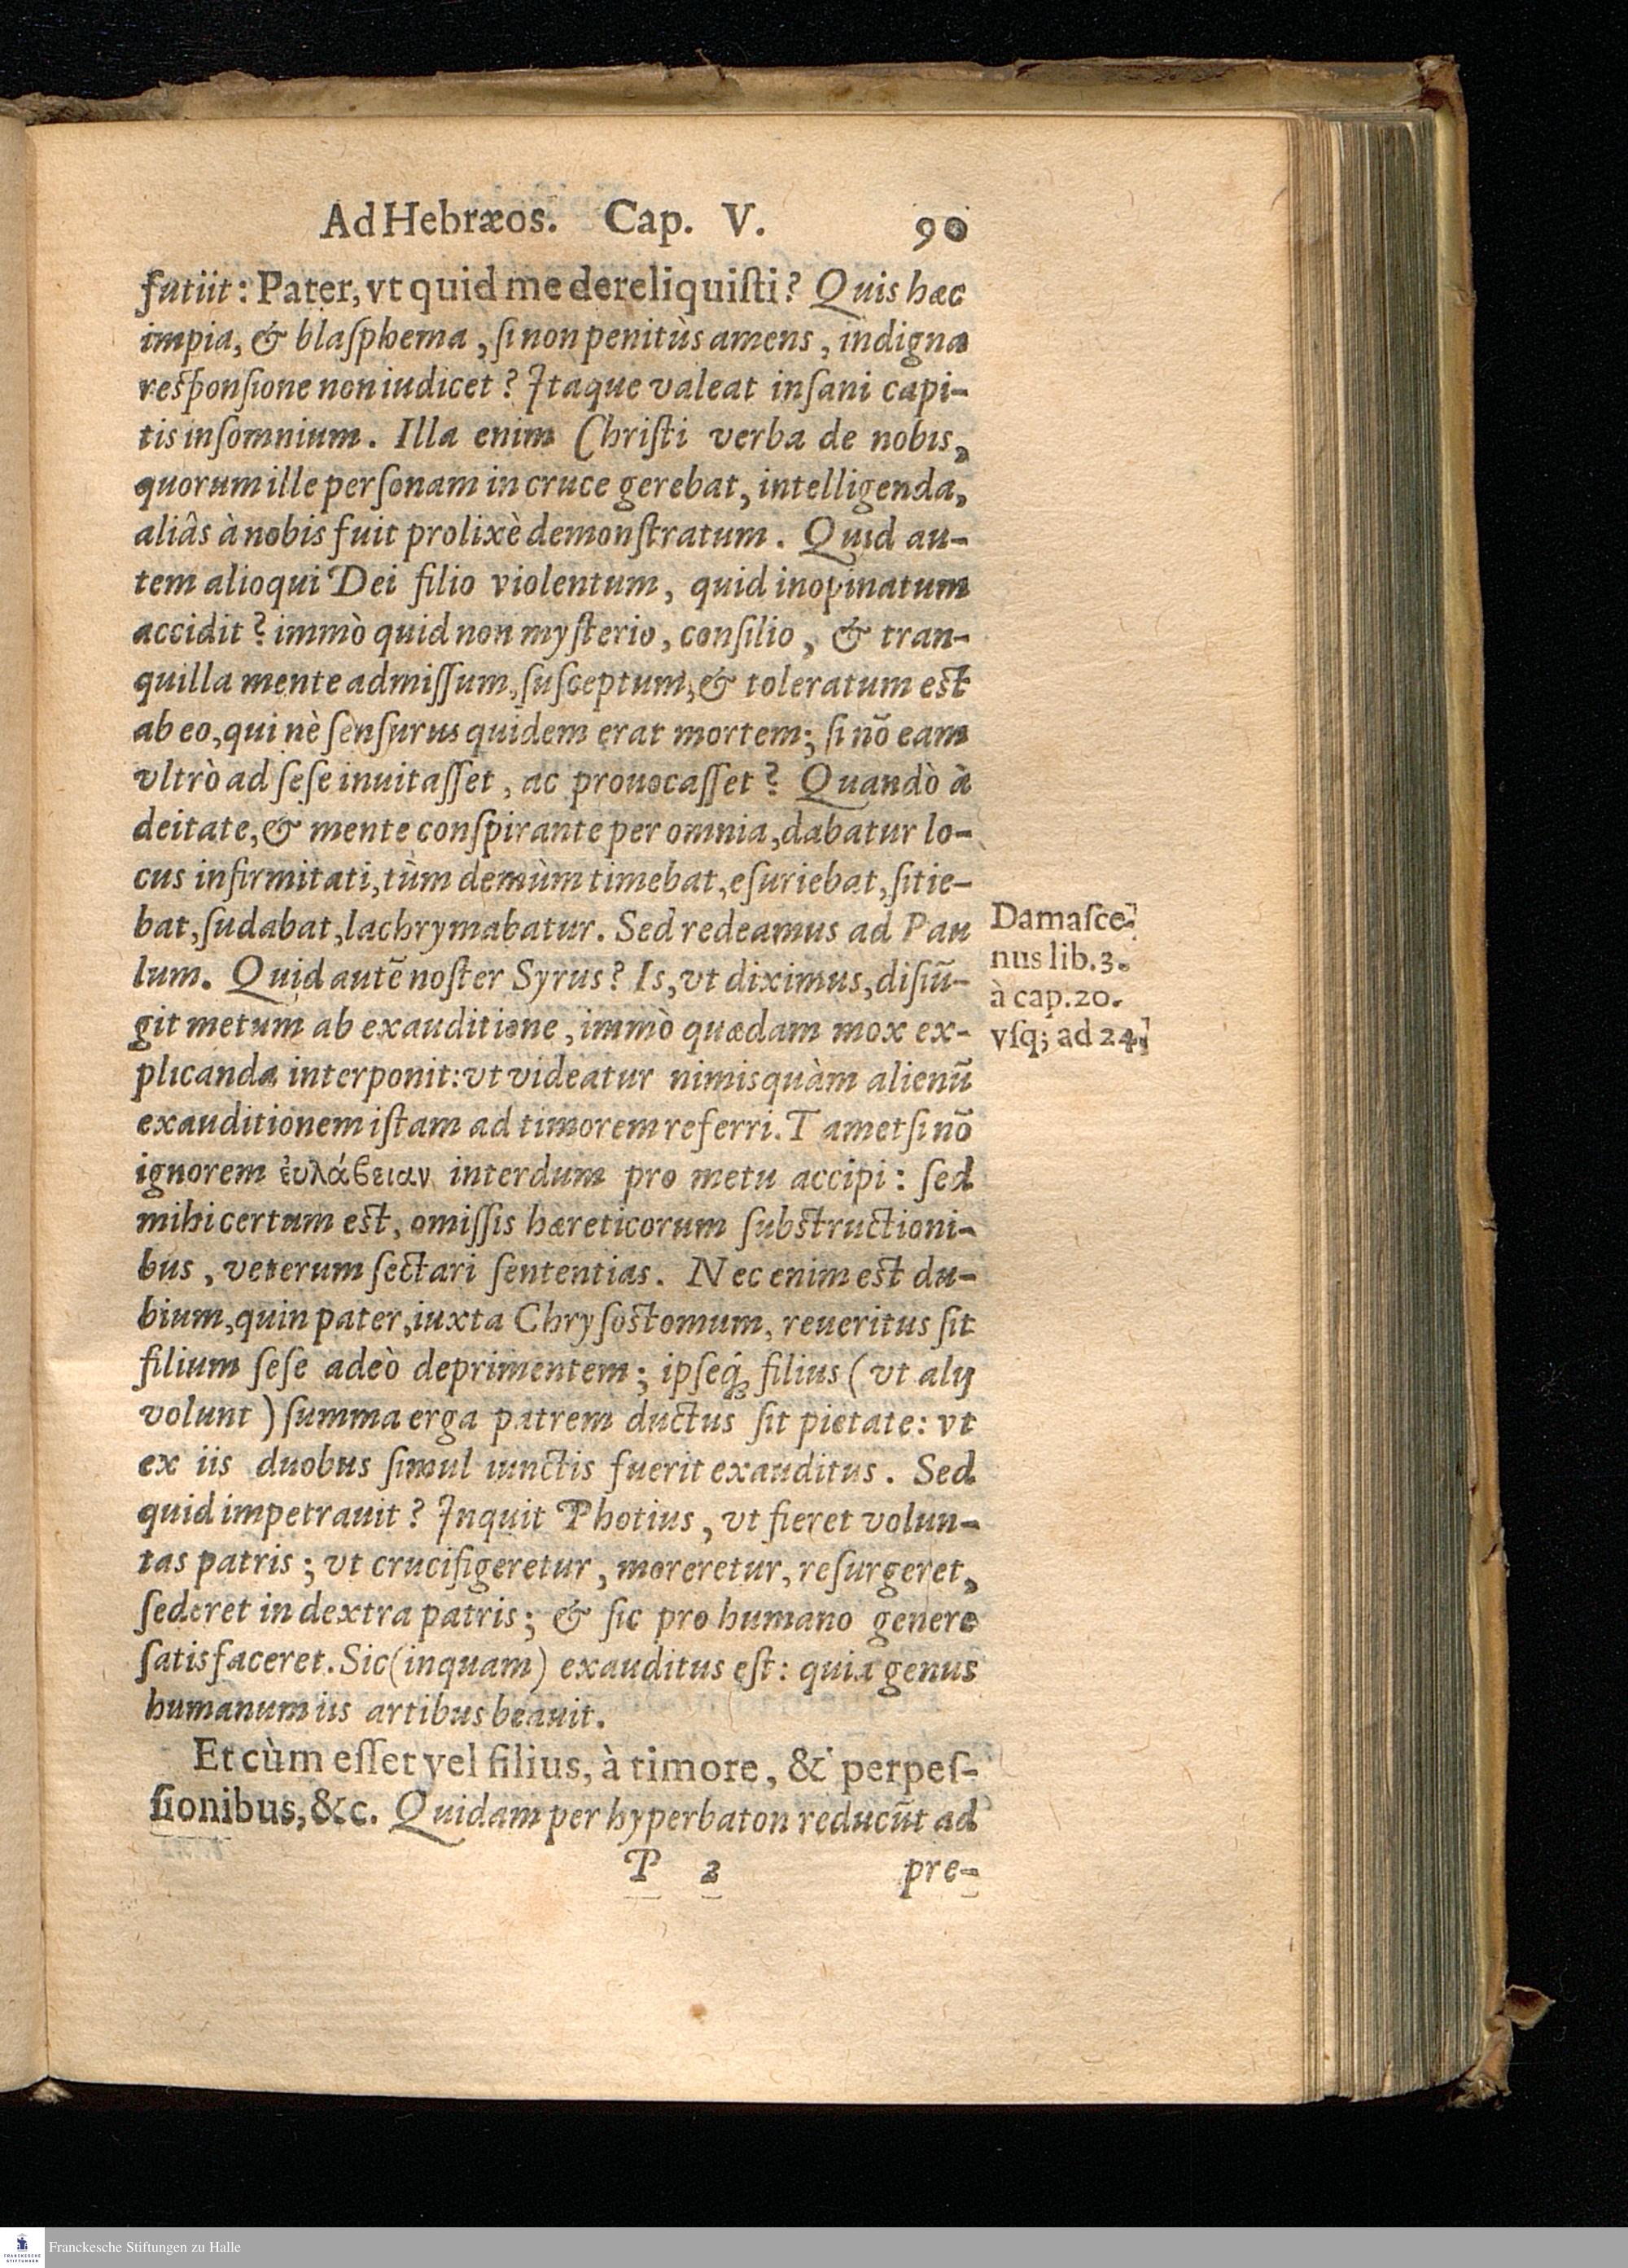 Ad Hebræos. Cap. V. 90
futiit: Pater, vt quid me dereliquiſti? Quis hæc
impia, & blaſphema, ſi non penitùs amens, indigna
reſponſione non iudicet? Itaque valeat inſani capi-
tis inſomnium. Illa enim Chriſti verba de nobis,
quorum ille perſonam in cruce gerebat, intelligenda,
aliâs à nobis fuit prolixè demonſtratum. Quid au-
tem alioqui Dei filio violentum, quid inopinatum
accidit? immò quid non myſterio, conſilio, & tran-
quilla mente admiſſum, ſuſceptum, & toleratum eſt
ab eo, qui nè ſenſurus quidem erat mortem; ſi nõ eam
vltrò ad ſeſe inuitaſſet, ac prouocaſſet? Quandò à
deitate, & mente conſpirante per omnia, dabatur lo-
cus infirmitati, tùm demùm timebat, eſuriebat, ſitie-
bat, ſudabat, lachrymabatur. Sed redeamus ad Pau
lum. Quid autẽ noſter Syrus? Is, vt diximus, diſiũ-
git metum ab exauditione, immò quædam mox ex-
plicanda interponit: vt videatur nimis quàm alienũ
exauditionem iſtam ad timorem referri. Tametſi nõ
ignorem ἐυλάϐειαν interdum pro metu accipi: ſed
mihi certum eſt, omiſſis hæreticorum ſubſtructioni-
bus, veterum ſectari ſententias. Nec enim eſt du-
bium, quin pater, iuxta Chryſoſtomum, reueritus ſit
filium ſeſe adeò deprimentem; ipſeq́ꝫ filius (vt alij
volunt) ſumma erga patrem ductus ſit pietate: vt
ex iis duobus ſimul iunctis fuerit exauditus. Sed
quid impetrauit? Inquit Photius, vt fieret volun-
tas patris; vt crucifigeretur, moreretur, reſurgeret,
ſederet in dextra patris; & ſic pro humano genere
ſatisfaceret. Sic (inquam) exauditus eſt: quia genus
humanum iis artibus beauit.
Et cùm eſſet vel filius, à timore, & perpeſ-
ſionibus, &c. Quidam per hyperbaton reducũt ad
P 2 pre-
Damaſce-
nus lib. 3.
à cap. 20.
vſq; ad 24.
Franckesche Stiftungen zu Halle
FRANCKESCHE
STIFTUNGEN